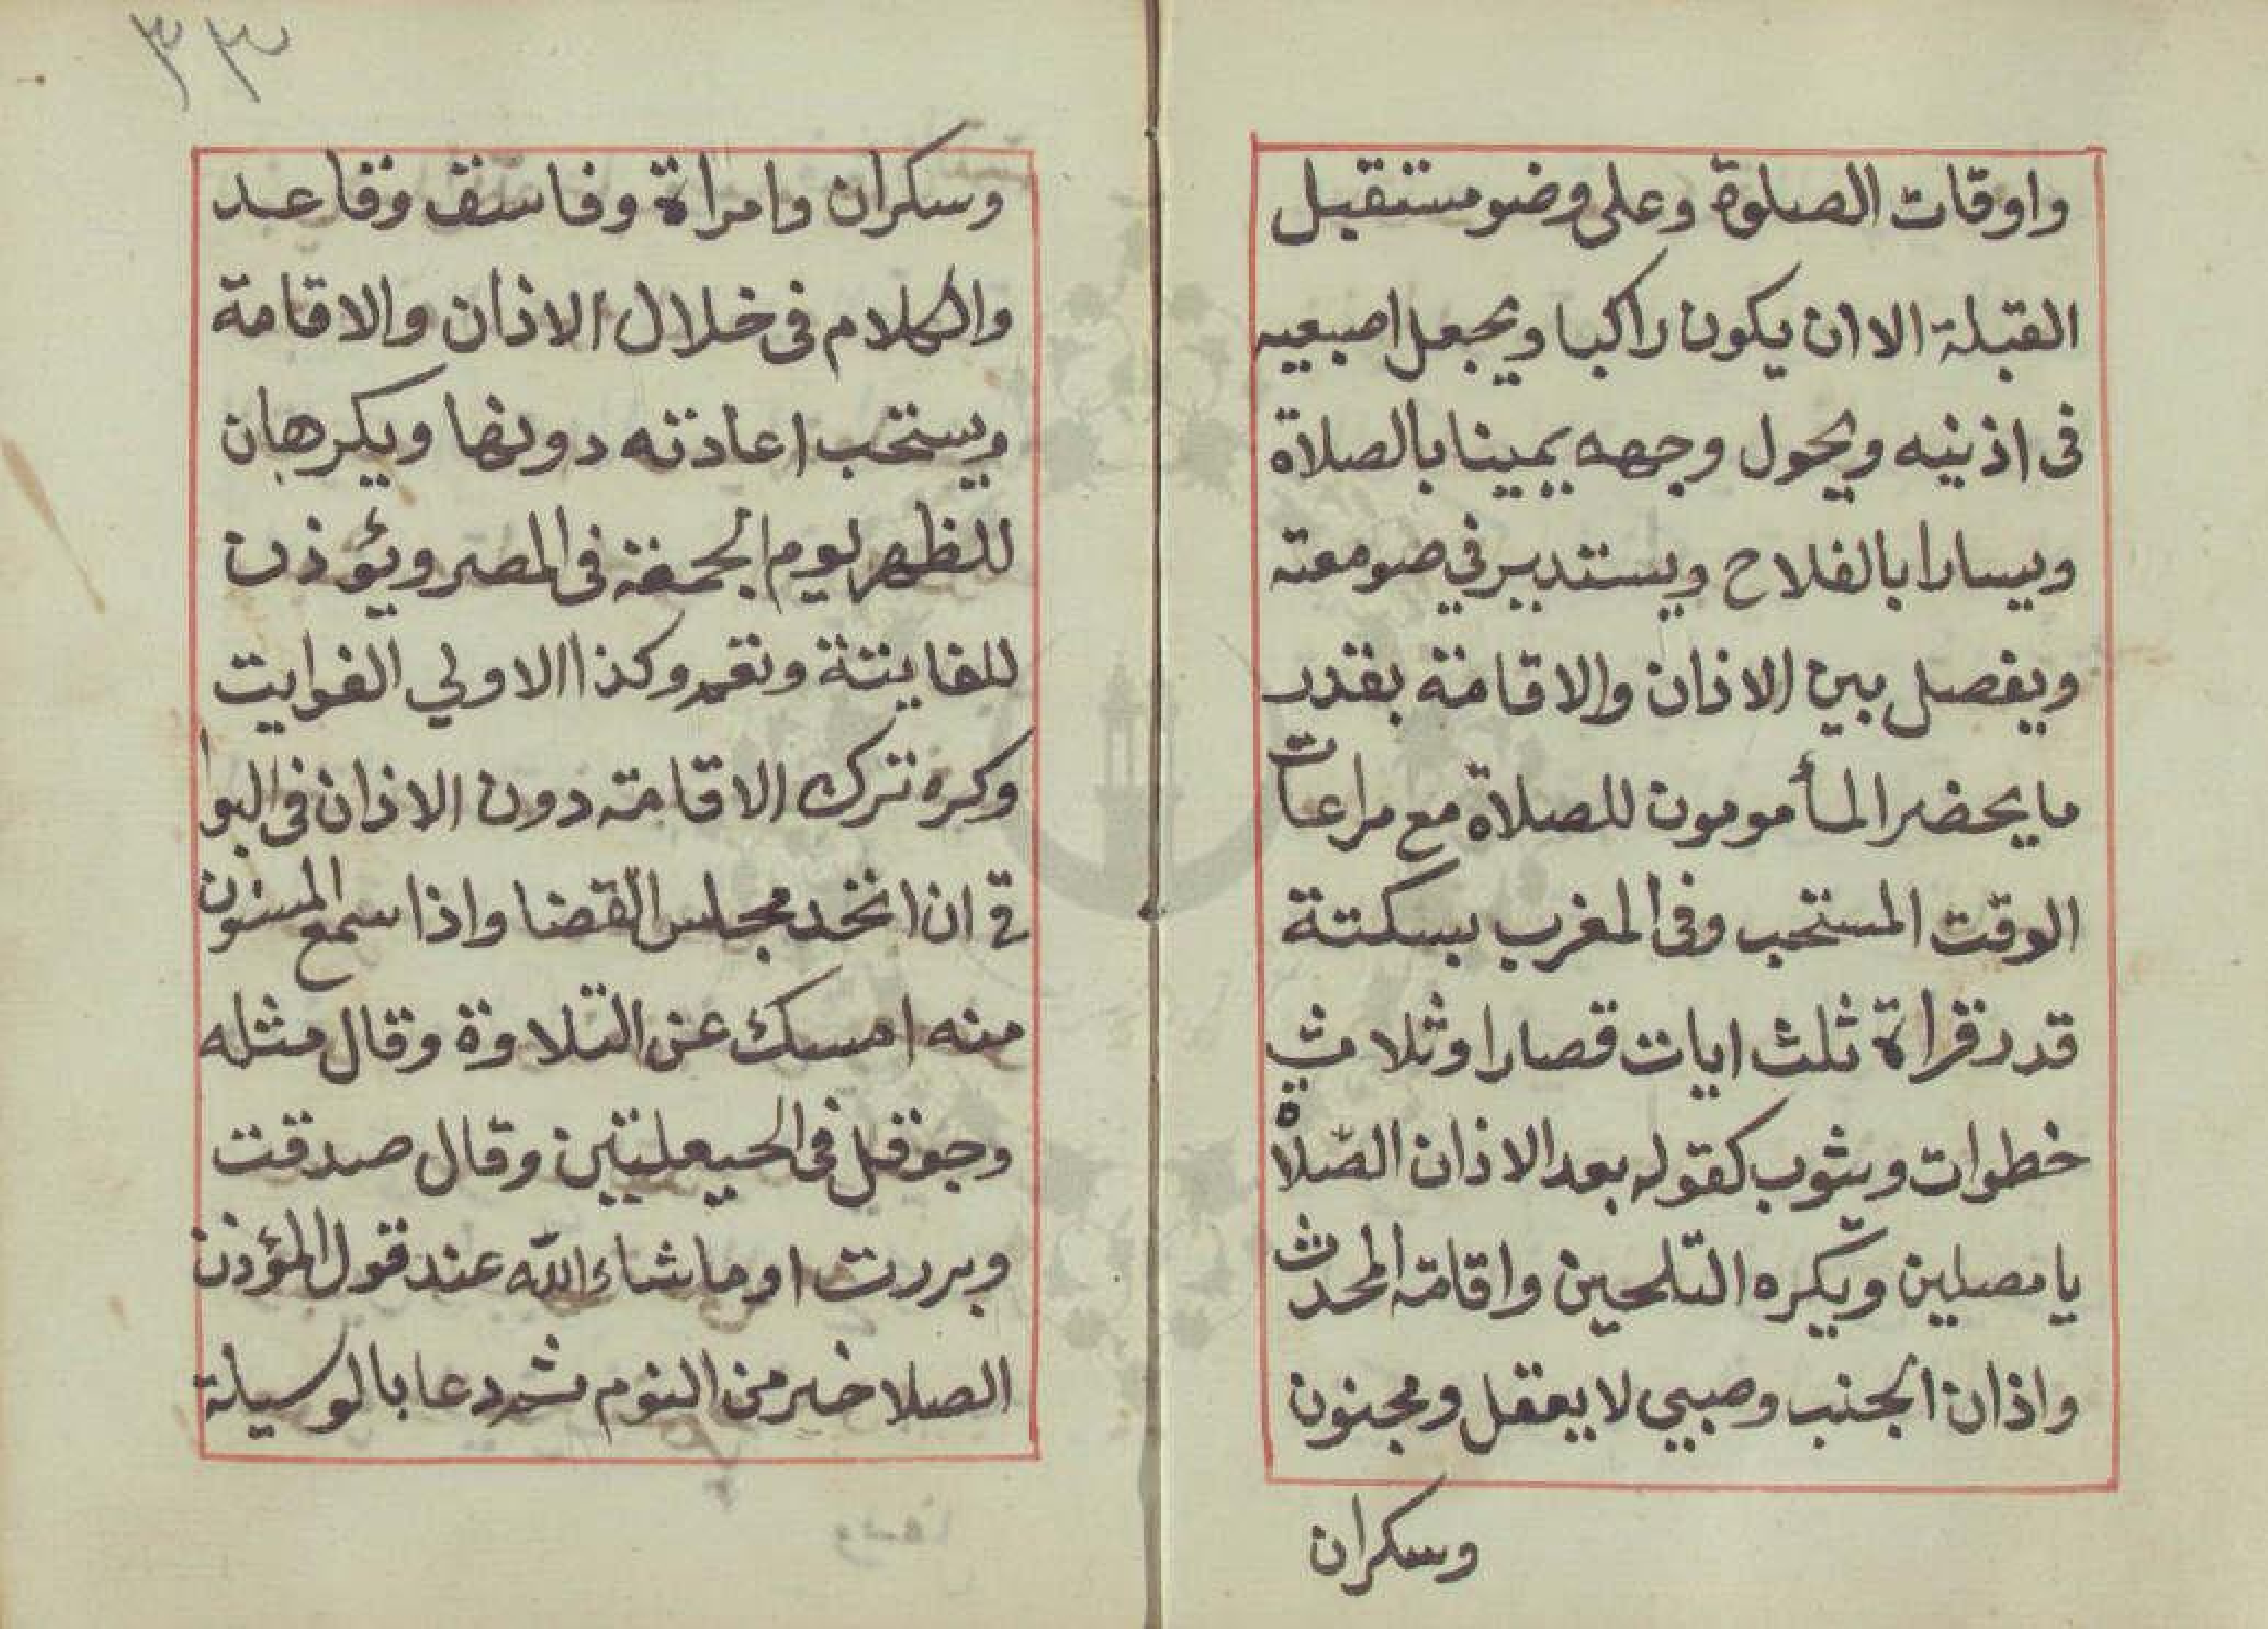 واوقات الصلوة وعلى وضو مستقبل
القبلة الا ان يكون راكبا ويجعل اصبعيه
فى اذنيه ويحول وجهه يمينا بالصلاة
ويسارا بالفلاح ويستدير في صومعته
ويفصل بين الاذان والاقامة بقدر
ما يحضر المأمومون للصلاة مع مراعات
الوقت المستحب وفى المغرب بسكتة
قدر قراة ثلث ايات قصار اوثلاث
خطوات ويثوب كقوله بعد الاذان الصلاة
يا مصلين ويكره التلحين واقامة المحدث
واذان الجنب وصبي لا يعقل ومجنون
وسكران
٣٣
وسكران وامراة وفاسق وقاعد
والكلام فى خلال الاذان والاقامة
ويستحب اعادته دونها ويكرهان
للظهر يوم الجمعة فى المصر ويؤذن
للفايتة وتقم وكذا الاولي الفوايت
وكره ترك الاقامة دون الاذان فى البوا
قي ان اتخد مجلس القضا واذا سمع المسنون
منه امسك عن التلاوة وقال مثله
وحوقل فى الحيعلتين وقال صدقت
وبررت او ما شاء الله عند قول المؤذن
الصلا خير من النوم ثم دعا بالوسيلة